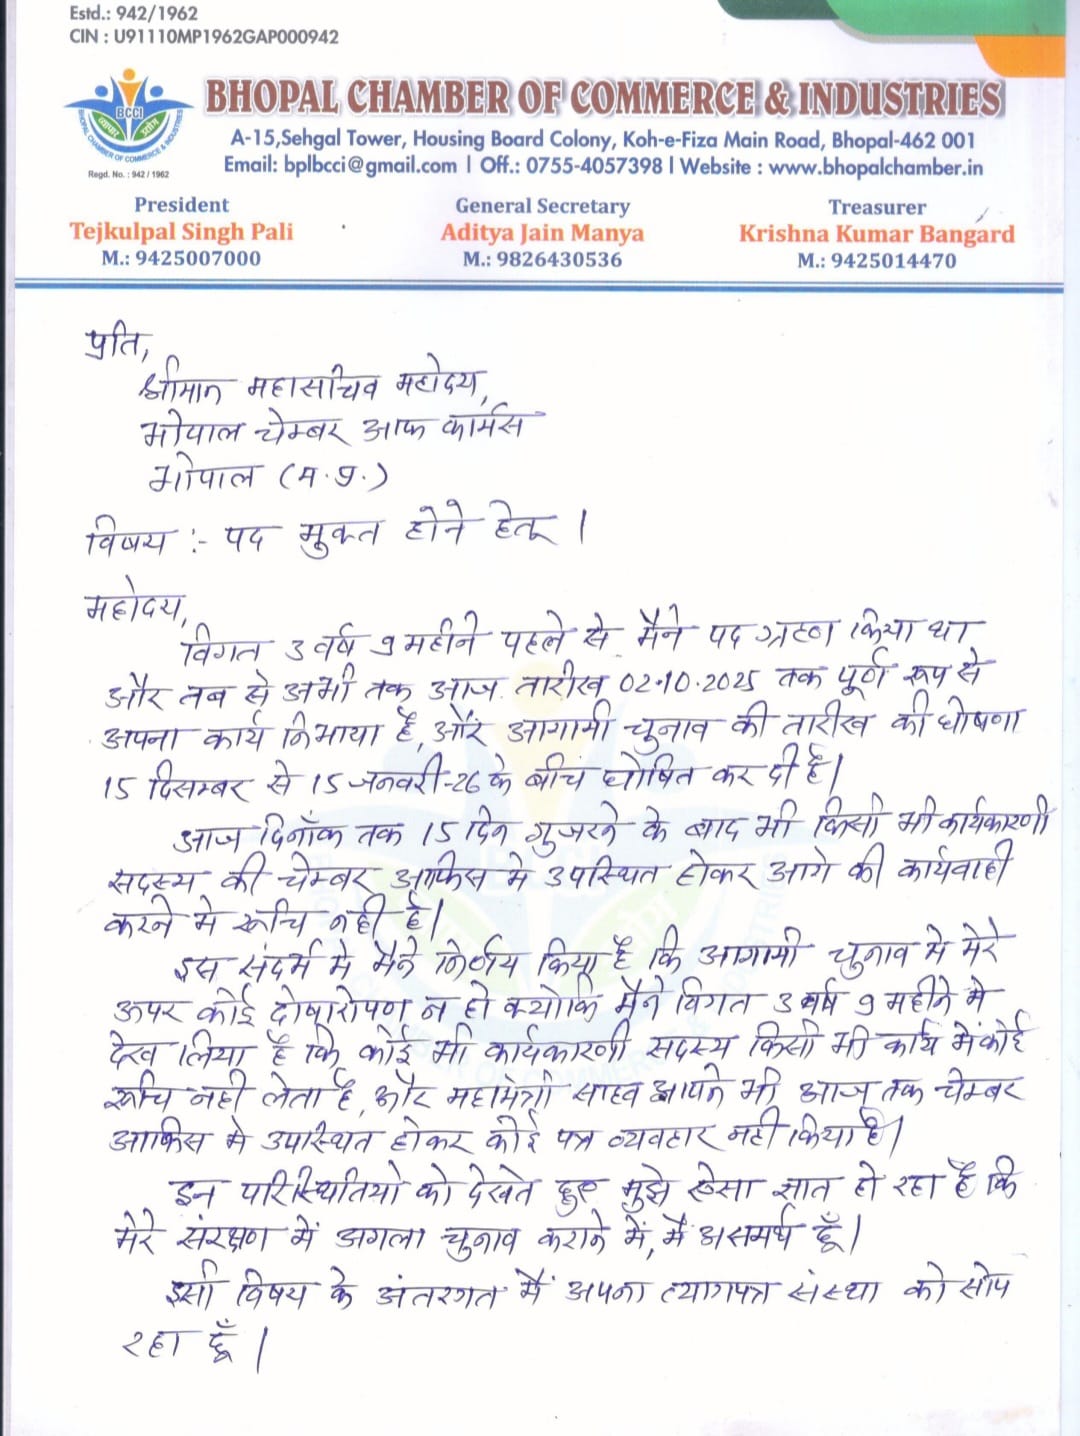 Estd.: 942/1962
CIN : U91110MP1962GAP000942
BCCI
BHOPAL CHAMBER OF COMMERCE & INDUSTRIES
Regd. No. : 942 / 1962
BHOPAL CHAMBER OF COMMERCE & INDUSTRIES
A-15,Sehgal Tower, Housing Board Colony, Koh-e-Fiza Main Road, Bhopal-462 001
Email: bplbcci@gmail.com | Off.: 0755-4057398 | Website : www.bhopalchamber.in
President General Secretary Treasurer
Tejkulpal Singh Pali Aditya Jain Manya Krishna Kumar Bangard
M.: 9425007000 M.: 9826430536 M.: 9425014470
प्रति,
श्रीमान महासचिव महोदय,
भोपाल चेम्बर आफ कार्मस
भोपाल (म.प्र.)
विषय :- पद मुक्त होने हेतू।
महोदय,
विगत 3 वर्ष 9 महीने पहले से मैने पद ग्रहण किया था
और तब से अभी तक आज तारीख 02.10.2025 तक पूर्ण रूप से
अपना कार्य निभाया है, और आगामी चुनाव की तारीख की घोषणा
15 दिसम्बर से 15 जनवरी-26 के बीच घोषित कर दी है।
आज दिनाँक तक 15 दिन गुजरने के बाद भी किसी भी कार्यकारणी
सदस्य की चेम्बर आफिस मे उपस्थित होकर आगे की कार्यवाही
करने मे रूचि नही है।
इस संदर्भ मे मैने निर्णय किया है कि आगामी चुनाव मे मेरे
ऊपर कोई दोषारोपण न हो क्योकि मैने विगत 3 वर्ष 9 महीने मे
देख लिया है कि कोई भी कार्यकारणी सदस्य किसी भी कार्य में कोई
रूचि नही लेता है, और महामंत्री साहब आपने भी आज तक चेम्बर
आफिस मे उपस्थित होकर कोई पत्र व्यवहार नही किया है।
इन परिस्थितियो को देखते हुए मुझे ऐसा ज्ञात हो रहा है कि
मेरे संरक्षण में अगला चुनाव कराने में, मै असमर्थ हूँ।
इसी विषय के अंतरगत मैं अपना त्यागपत्र संस्था को सोप
रहा हूँ।